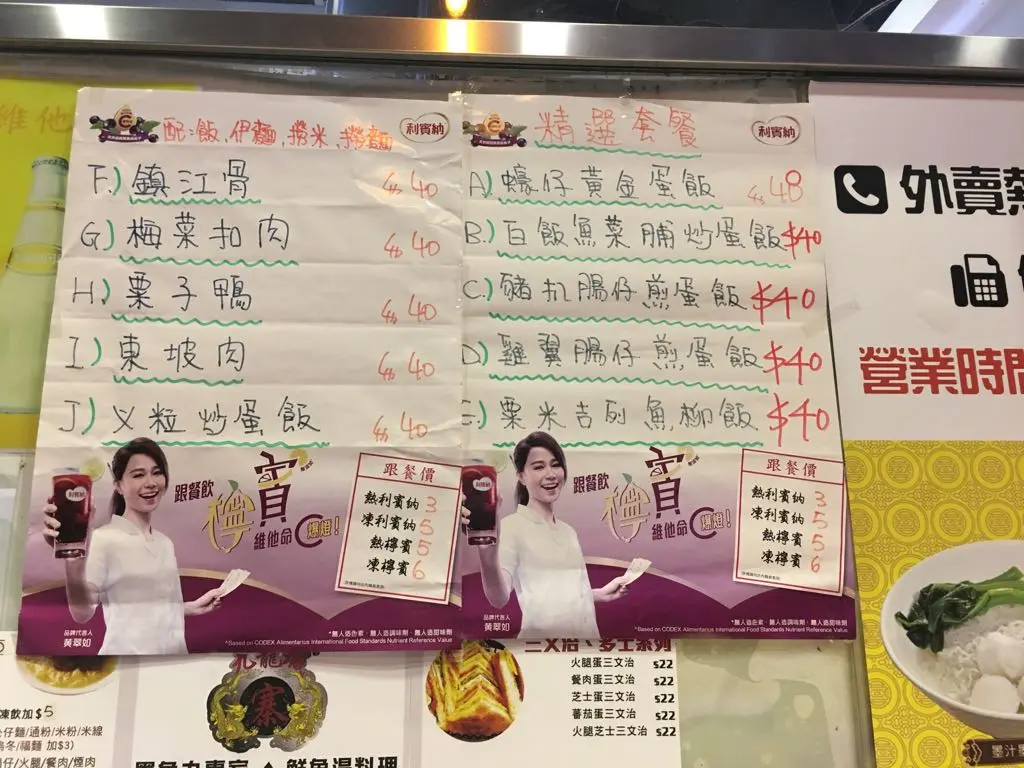 維他
配:飯,伊麵,撈米,撈麵
利賓納
F.) 鎮江骨 $40
G.) 梅菜扣肉 $40
H.) 栗子鴨 $40
I.) 東坡肉 $40
J.) 义粒炒蛋飯 $40
利賓納
跟餐飲
檸賓
維他命C爆燈!
跟餐價
熱利賓納 3
凍利賓納 5
熱檸賓 5
凍檸賓 6
品牌代言人
黃翠如
*無人造色素・無人造調味劑・無人造甜味劑
^Based on CODEX Alimentarius International Food Standards Nutrient Reference Value
精選套餐
利賓納
A) 蠔仔黃金蛋飯 $48
B.) 白飯魚菜脯炒蛋飯 $40
C.) 豬扒腸仔煎蛋飯 $40
D.) 雞翼腸仔煎蛋飯 $40
E.) 粟米吉列魚柳飯 $40
跟餐飲
檸賓
維他命C爆燈!
跟餐價
熱利賓納 3
凍利賓納 5
熱檸賓 5
凍檸賓 6
品牌代言人
黃翠如
*無人造色素・無人造調味劑・無人造甜味劑
^Based on CODEX Alimentarius International Food Standards Nutrient Reference Value
外賣熱
營業時間
凍飲加$5
公仔麵/通粉/米粉/米線
烏冬/福麵 加$3)
腸仔/火腿/餐肉/煙肉
九龍寨
寨
墨魚丸專家 ◆ 鮮魚湯料理
三文治、多士系列
火腿蛋三文治 $22
餐肉蛋三文治 $22
芝士蛋三文治 $22
蕃茄蛋三文治 $22
火腿芝士三文治 $22
墨汁墨